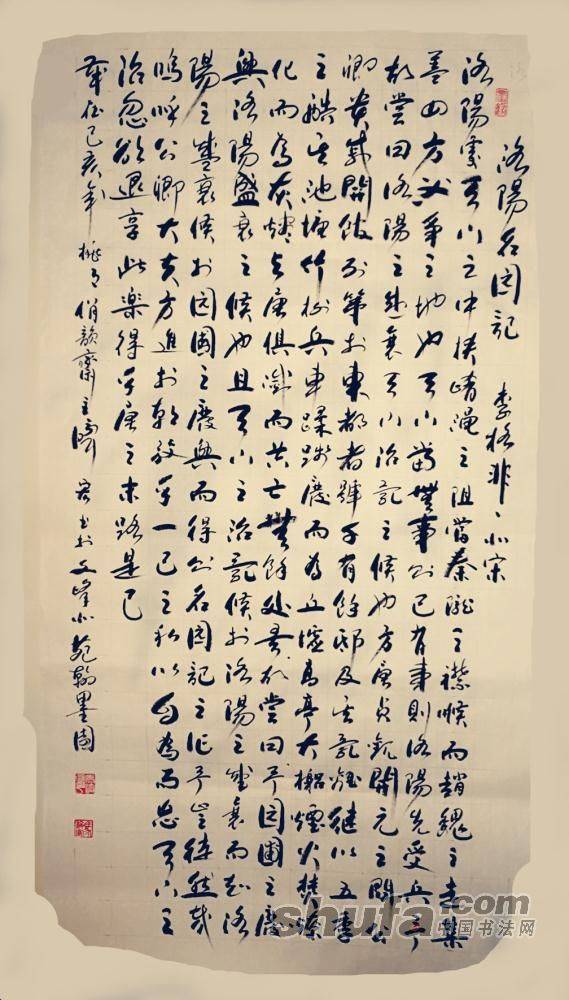 洛陽名园記 李格非 北宋
洛陽處天下之中挟崤渑之阻當秦隴之襟喉而趙魏之走集
蓋四方必爭之地也天下當無事則已有事則洛陽先受兵予
故嘗曰洛陽之盛衰天下治乱之候也方唐貞観開元之間公
卿貴戚開馆列第於東都者號千有餘邸及其乱離継以五季
之酷其池塘竹树兵車蹂践廢而為丘墟高亭大榭煙火焚燎
化而為灰燼与唐俱滅而共亡無餘处矣故嘗曰予园圃之廢
興洛陽盛衰之候也且天下之治乱候於洛陽之盛衰而知洛
陽之盛衰候於园圃之廢興而得則名园記之作予豈徒然哉
嗚呼公卿大夫方進於朝放乎一己之私以自為而忘天下之
治忽欲退享此樂得乎唐之末路是已
歲在己亥年 桃月 俏韻齋主 書於文峰小苑翰墨園
shufa.com
中国书法网